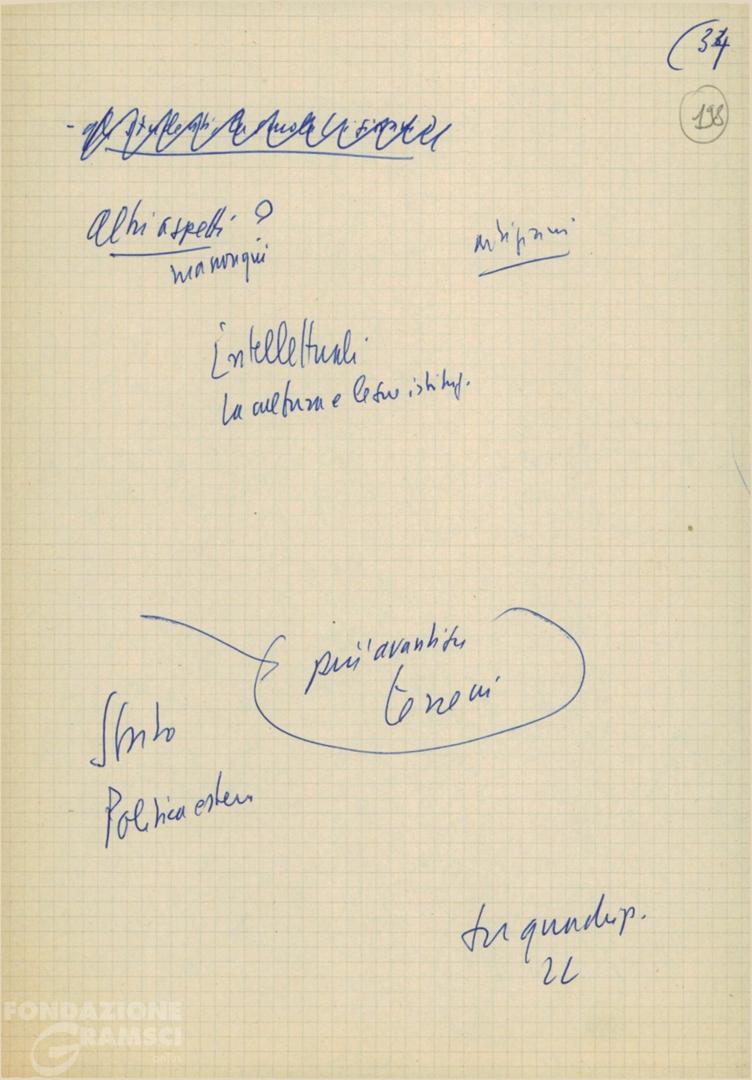 (34
198
Altri aspetti?
ma non qui
artigiani
Intellettuali
La cultura e le sue istituz.
più avanti su
terreni
Stato
Politica estera
su quadrip.
FONDAZIONE
GRAMSCI